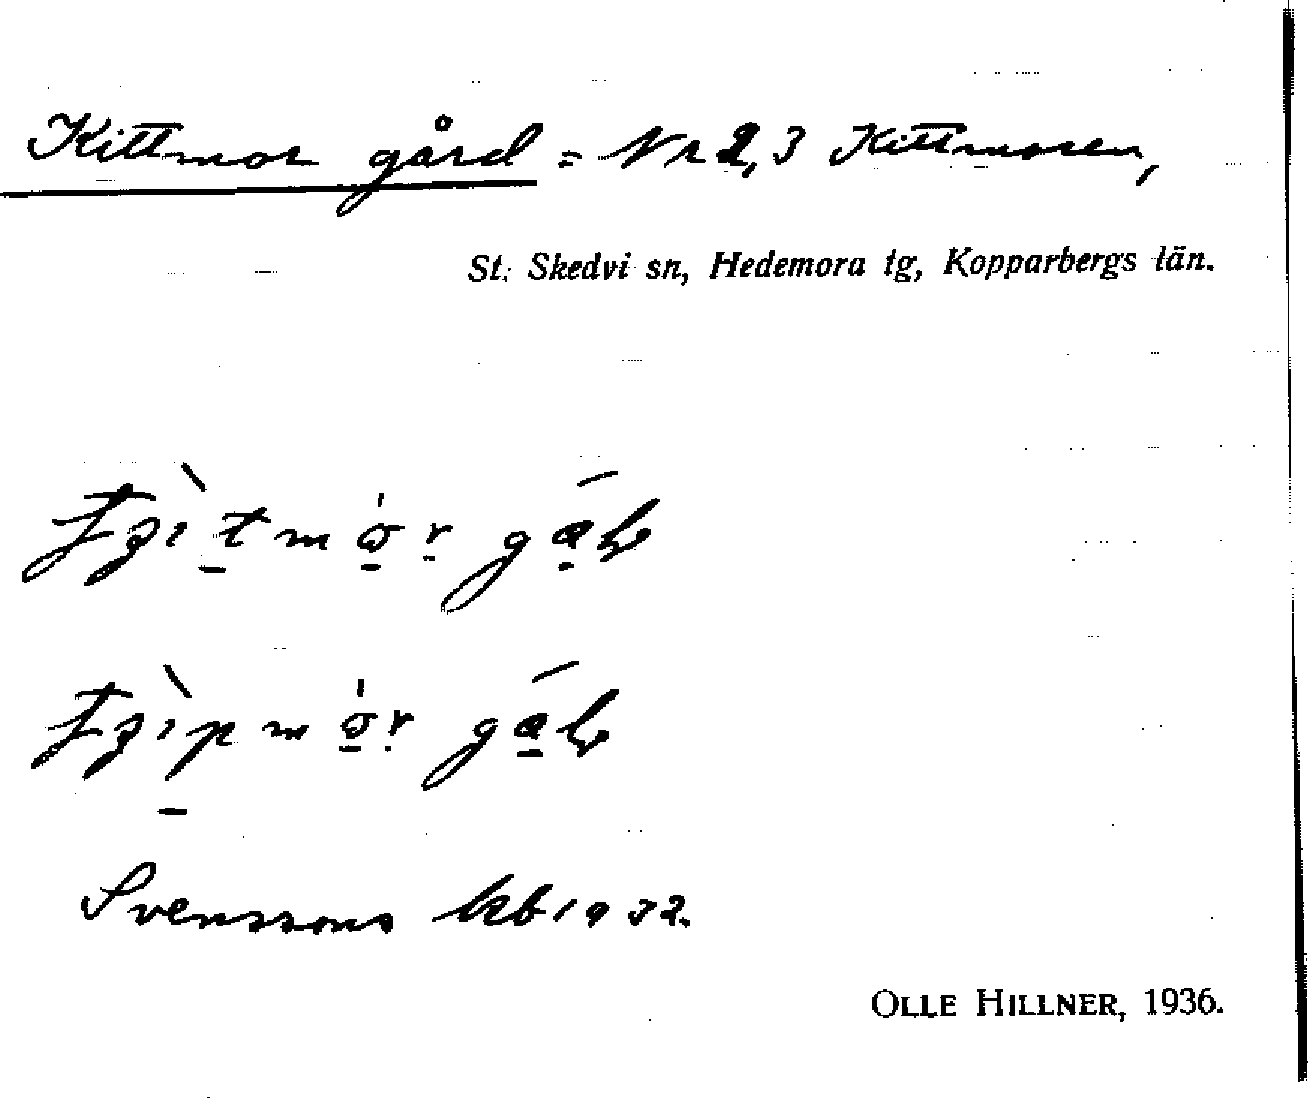 Kittmor gård = Nr 2, 3 Kittmoren,
St. Skedvi sn, Hedemora tg, Kopparbergs län.
Svenssons kb 1932.
OLLE HILLNER, 1936.